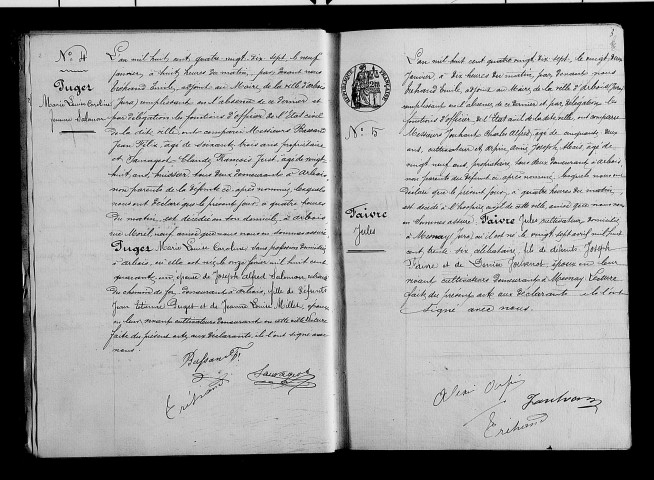 N° 4
Puger
Marie Louise Caroline
femme Salomon
L'an mil huit cent quatre vingt dix sept, le neuf
janvier, à huit heures du matin, par devant nous
Tréhand Emile, adjoint au Maire, de la ville d'Arbois
(Jura) remplissant en l'absence de ce dernier et
par délégation les fonctions d'officier de l'Etat civil
de la dite ville, ont comparu Messieurs
Jean Félix, âgé de soixante trois ans propriétaire
et Claude François Just, âgé de vingt
huit ans, huissier tous deux demeurant à Arbois,
non parents de la défunte ci après nommée, lesquels
nous ont déclaré que le présent jour, à quatre heures
du matin, est décédée en son domicile, à Arbois
rue Morel, neuf, ainsi que nous nous en sommes assuré
Puger Marie Louise Caroline, sans profession domiciliée
à Arbois, où elle est née, le onze janvier mil huit cent
quarante un, épouse de Joseph Alfred Salomon retraité
du chemin de fer, demeurant à Arbois, fille de défunts
Jean Etienne Puget et de Jeanne Louise Millet, époux
en leur vivant cultivateurs demeurant en cette ville Lecture
faite du présent acte aux déclarants, ils l'ont signé avec
nous.
Tréhand
REPUBLIQUE FRANÇAISE
N° 5
Faivre
Jules
L'an mil huit cent quatre vingt dix sept, le vingt deux
Janvier à dix heures du matin, par devant nous
Tréhand Emile, adjoint au Maire, de la ville d'Arbois (Jura)
remplissant en l'absence, de ce dernier, et par délégation, les
fonctions d'officier de l'Etat civil de la dite ville, ont comparu
Messieurs Charles Alfred, âgé de cinquante deux
ans, cultivateur et Joseph Alexis, âgé de
vingt neuf ans, propriétaire, tous deux demeurant à Arbois
non parents du défunt ci après nommé, lesquels nous ont
déclaré que le présent jour, à quatre heures du matin,
est décédé à l'hospice de cette ville, ainsi que nous nous
en sommes assuré Faivre Jules cultivateur domicilié
à Mesnay (Jura) où il est né le vingt sept avril mil huit
cent trente six célibataire, fils de défunts Joseph
Faivre et de Denise époux en leur
vivant cultivateurs demeurant à Mesnay. Lecture
faite du présent acte aux déclarants ils l'ont
signé avec nous.
Tréhand